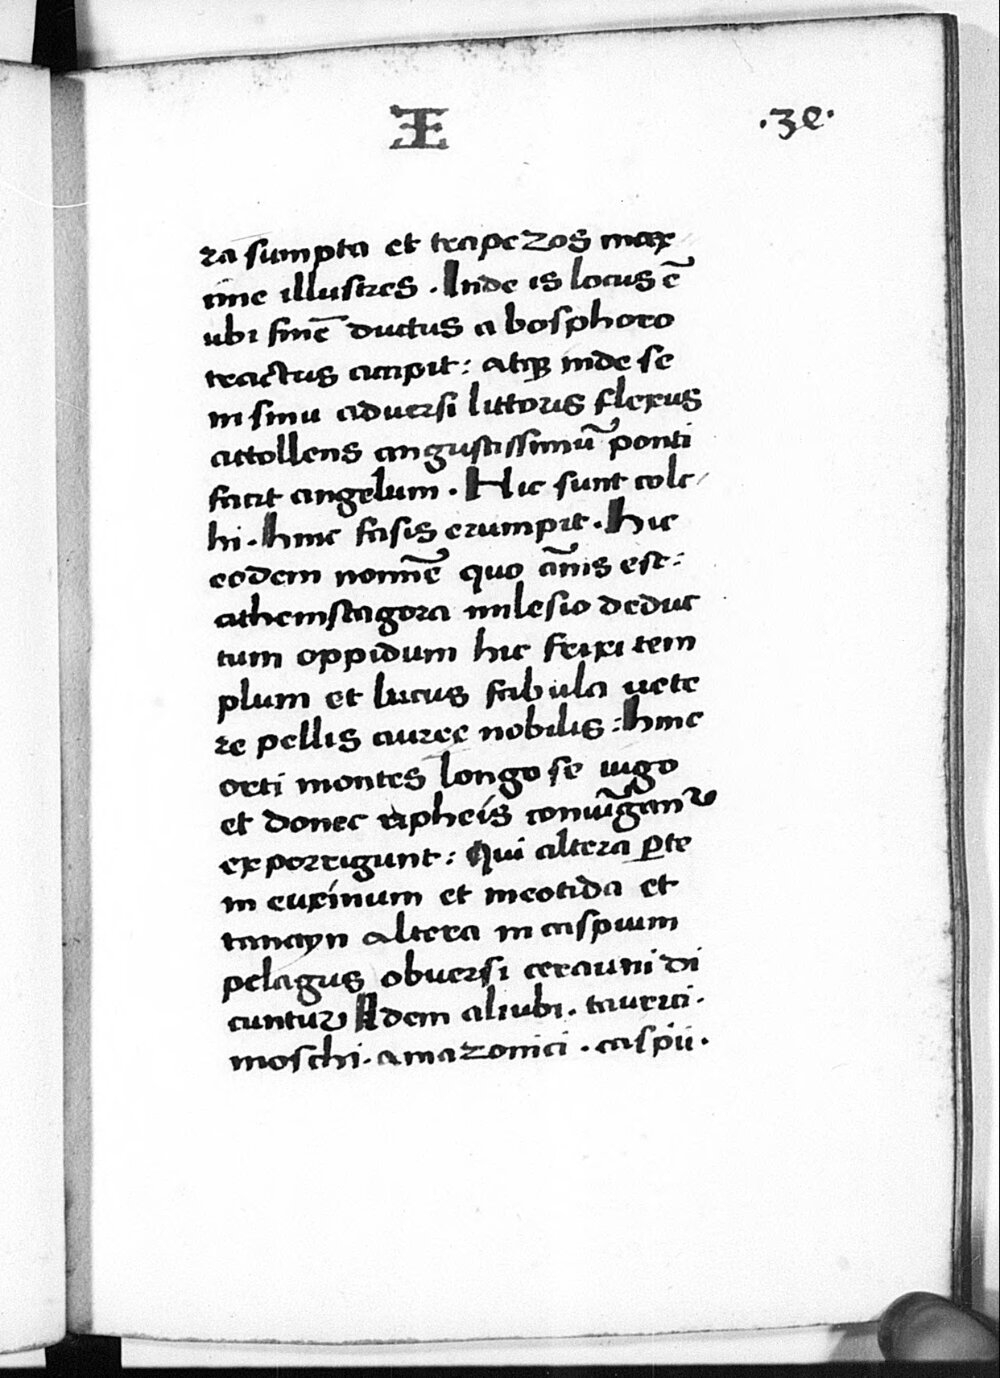 .39.
ra sumpta et trapezos max
ime illustres . Inde is locus ē
ubi finē ductus a bosphoro
tractus accipit: atq3 inde se
in sinu adversi littoris flexus
attollens angustissimū ponti
facit angelum . Hic sunt colc
hi . hinc fasis erumpit . hic
eodem nomīe quo āmis est:
athemistagora milesio deduc
tum oppidum hic frixi tem
plum et lucus fabula vete
re pellis auree nobilis : hinc
orti montes longo se iugo
et donec ripheis coniūgantur
exporrigunt : Qui altera p̄te
in euxinum et meotida et
tanayn altera in caspium
pelagus obversi cerauni di
cuntur Idem aliubi . taurici .
moschi . amazonici . caspii .